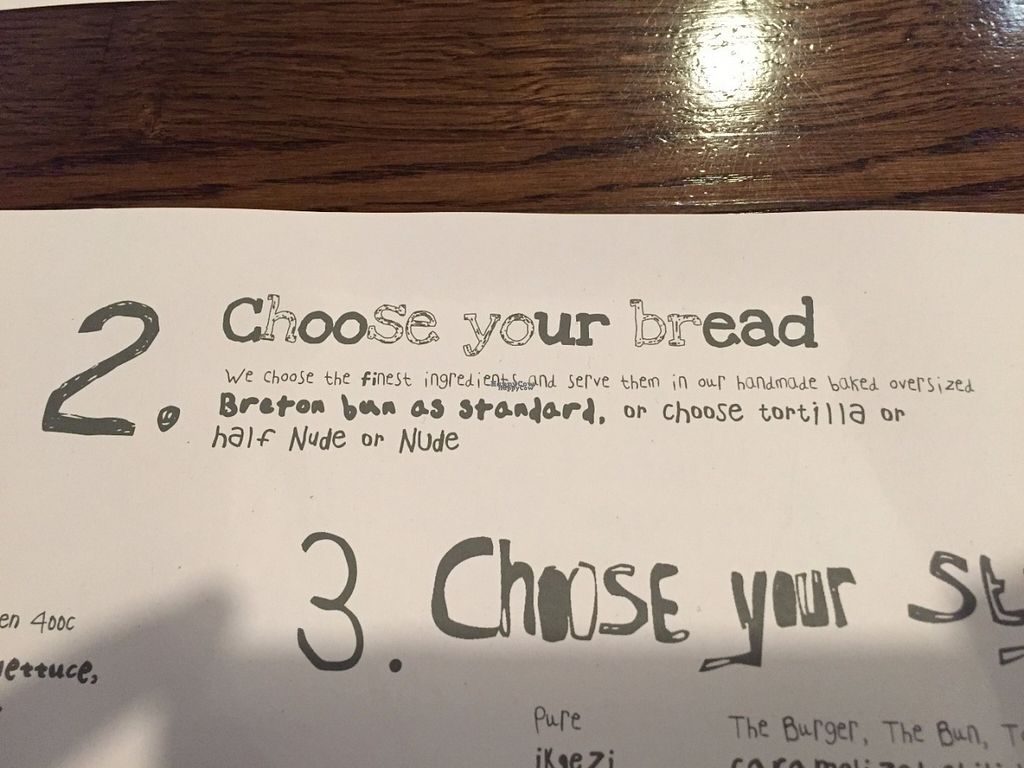 2. Choose your bread
We choose the finest ingredients and serve them in our handmade baked oversized
Breton bun as standard, or choose tortilla or
half Nude or Nude
3. Choose your st
en 400c
lettuce,
Pure
The Burger, The Bun, To
ikgezi
caramelized chilli